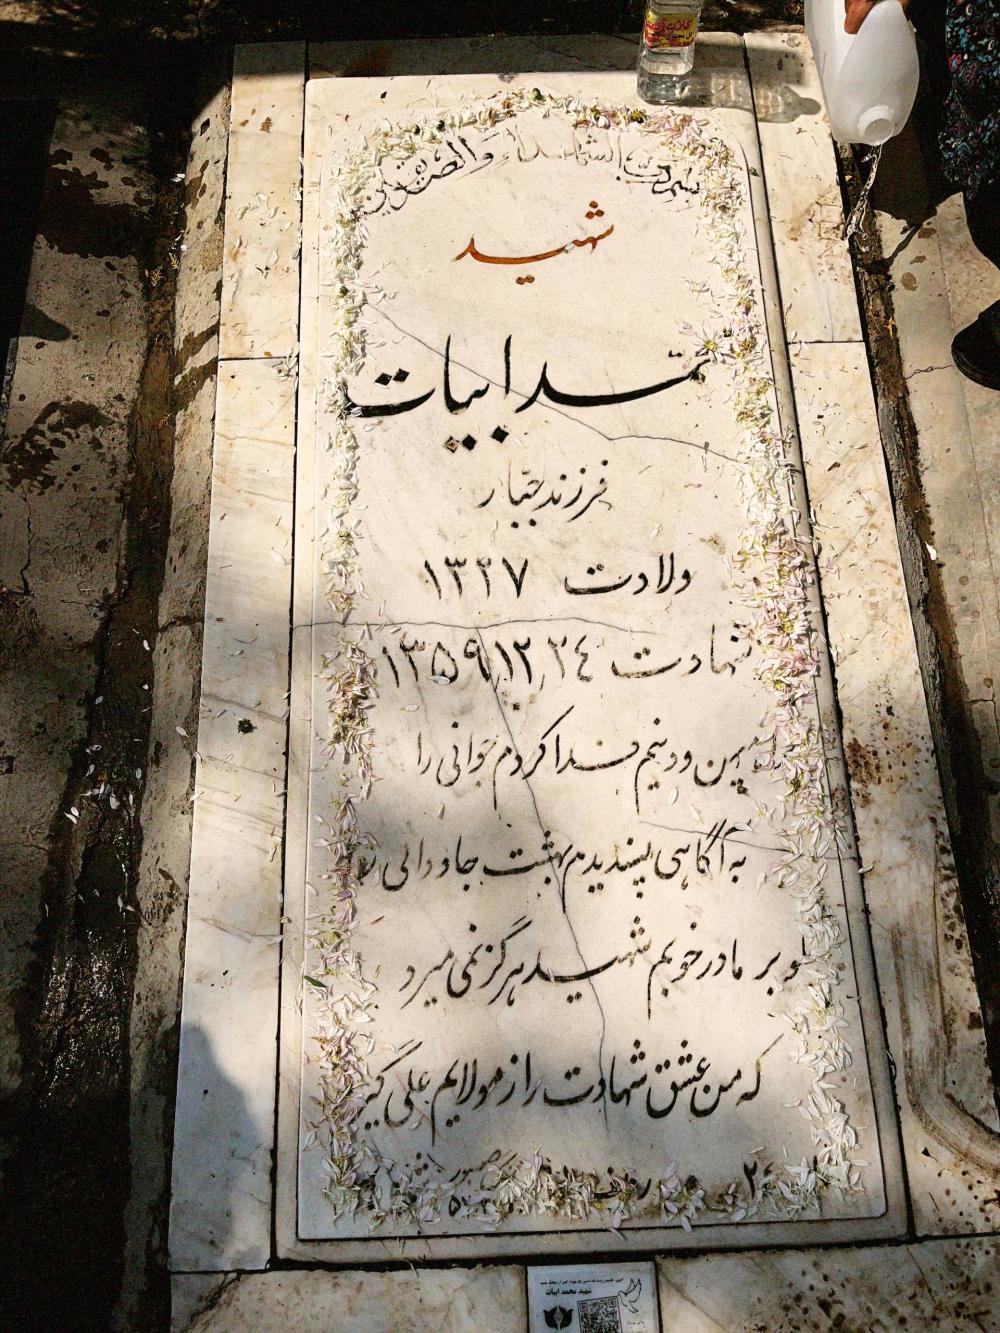 گلاب
والصدیقین
شهید
محمد ابیات
فرزند جبّار
ولادت ۱۳۲۷
شهادت ۱۳۵۹٫۱۲٫۲۴
و دینم فدا کردم جوانی را
به آگاهی پسندیدم بهشت جاودانی را
و بر مادر خوبم شهید هرگز نمی میرد
که من عشق شهادت را ز مولایم علی گیرم
شهید محمد ابیات